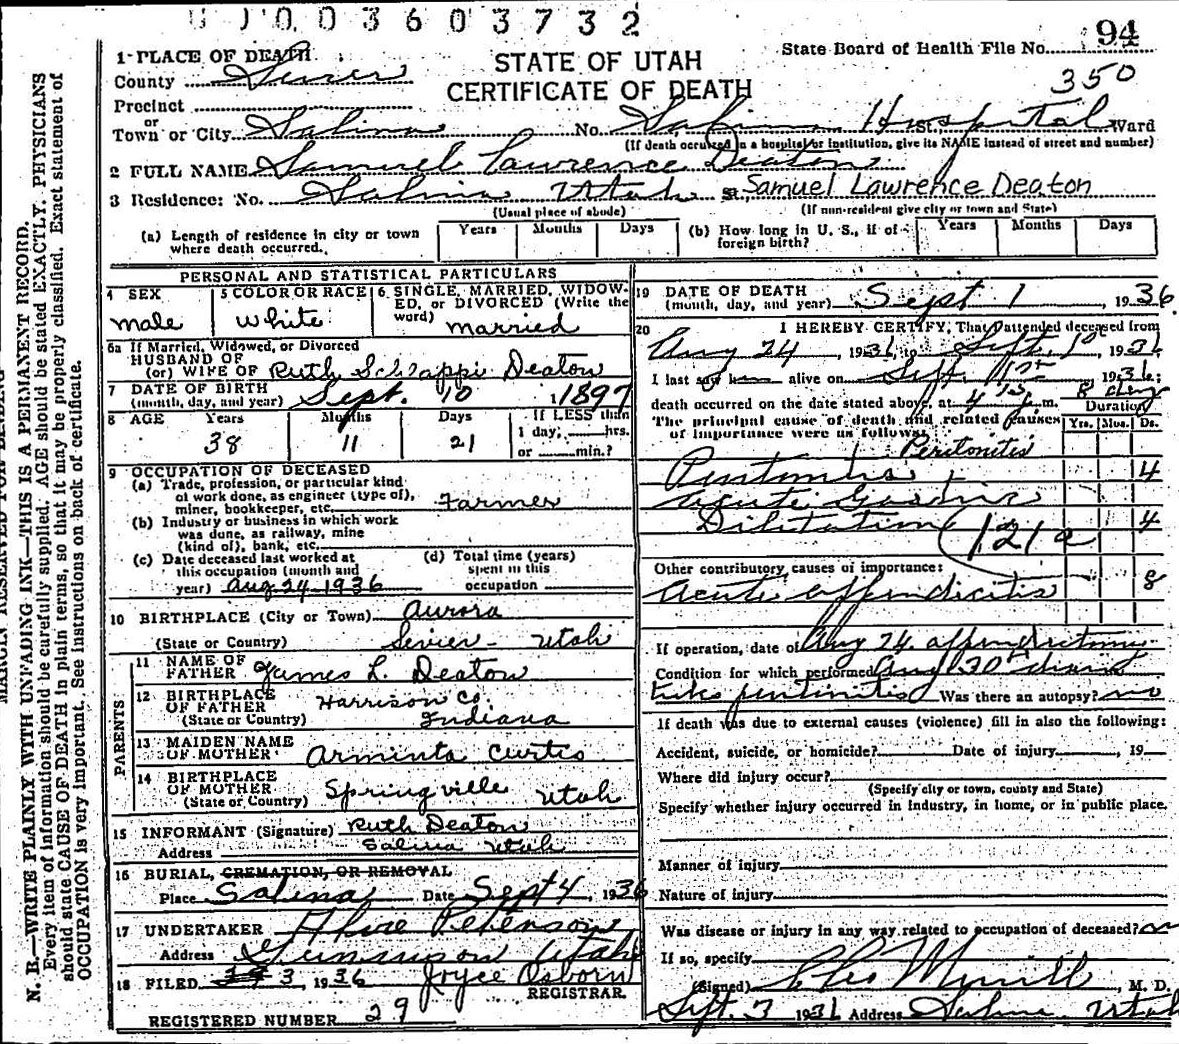 003603732
94
State Board of Health File No.
350
STATE OF UTAH
CERTIFICATE OF DEATH
1 PLACE OF DEATH
County Sevier
Precinct
or
Town or City Salina No. Salina Hospital St. Ward
(If death occurred in a hospital or institution, give its NAME instead of street and number)
2 FULL NAME Samuel Lawrence Deaton
3 Residence: No. Salina Utah St. Samuel Lawrence Deaton
(Usual place of abode) (If non-resident give city or town and State)
(a) Length of residence in city or town where death occurred. Years Months Days
(b) How long in U. S., if of foreign birth? Years Months Days
PERSONAL AND STATISTICAL PARTICULARS
4 SEX male
5 COLOR OR RACE White
6 SINGLE, MARRIED, WIDOWED, or DIVORCED (Write the word) married
6a If Married, Widowed, or Divorced
HUSBAND OF
(or) WIFE OF Ruth Schlappi Deaton
7 DATE OF BIRTH
(month, day, and year) Sept. 10 1897
8 AGE Years Months Days If LESS than
38 11 21 1 day, hrs.
or min.?
9 OCCUPATION OF DECEASED
(a) Trade, profession, or particular kind
of work done, as engineer (type of),
miner, bookkeeper, etc. Farmer
(b) Industry or business in which work
was done, as railway, mine
(kind of), bank, etc.
(c) Date deceased last worked at
this occupation (month and
year) Aug 24 1936
(d) Total time (years)
spent in this
occupation
10 BIRTHPLACE (City or Town) Aurora
(State or Country) Sevier - Utah
PARENTS
11 NAME OF FATHER James L. Deaton
12 BIRTHPLACE OF FATHER Harrison Co.
(State or Country) Indiana
13 MAIDEN NAME OF MOTHER Arminta Curtis
14 BIRTHPLACE OF MOTHER Springville Utah
(State or Country)
15 INFORMANT (Signature) Ruth Deaton
Address Salina Utah
16 BURIAL, CREMATION, OR REMOVAL
Place Salina Date Sept 4, 1936
17 UNDERTAKER Peterson
Address Gunnison Utah
18 FILED 3, 1936 Joyce Osborn
REGISTRAR.
REGISTERED NUMBER 29
19 DATE OF DEATH
(month, day, and year) Sept 1, 1936
20 I HEREBY CERTIFY, That I attended deceased from
Aug 24, 1936, to Sept. 1st, 1936
I last saw alive on Sept. 1st 1936;
death occurred on the date stated above, at 4 m. 8 days
Duration
The principal cause of death and related causes
of importance were as follows: Yrs. Mos. Ds.
Peritonitis
Peritonitis + 4
acute Cardiac
Dilitation 4
121a
Other contributory causes of importance:
Acute appendicitis 8
If operation, date of Aug 24. appendectomy
Condition for which performed Aug 30th
peritonitis Was there an autopsy? no
If death was due to external causes (violence) fill in also the following:
Accident, suicide, or homicide? Date of injury , 19
Where did injury occur?
(Specify city or town, county and State)
Specify whether injury occurred in industry, in home, or in public place.
Manner of injury
Nature of injury
Was disease or injury in any way related to occupation of deceased? no
If so, specify
(Signed) Merrill, M. D.
Sept. 3 1936 Address Salina Utah
MARGIN RESERVED FOR BINDING
N. B.—WRITE PLAINLY WITH UNFADING INK—THIS IS A PERMANENT RECORD.
Every item of information should be carefully supplied. AGE should be stated EXACTLY. PHYSICIANS
should state CAUSE OF DEATH in plain terms, so that it may be properly classified. Exact statement of
OCCUPATION is very important. See instructions on back of certificate.